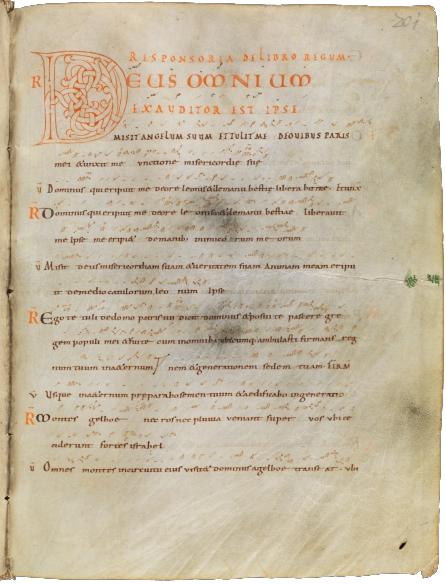 201
RESPONSORIA DE LIBRO REGUM
R DEUS OMNIUM
EXAUDITOR EST IPSE
MISIT ANGELUM SUUM ET TULIT ME DE OVIBUS PATRIS
mei & unxit me unctione misericordie sue
V Dominus qui eripuit me de ore leonis & de manu bestie liberavit me Et unx
R Dominus qui eripuit me de ore leonis & de manu bestiae liberavit
me Ipse me eripi& de manibus inimicorum meorum
V Misit deus misericordiam suam & veritatem suam Animam meam eripu
it de medio catulorum leonum Ipse
R Ego te tuli de domo patris tui dicit dominus & posui te pascere gre
gem populi mei & fui tecum in omnibus ubicumque ambulasti firmans reg
num tuum in aeternum nem & generationem sedem tuam FIRM
V Usque in aeternum praeparabo semen tuum & aedificabo in generatio
R Montes gelboe nec ros nec pluvia veniant super vos ubi ce
ciderunt fortes israhel
V Omnes montes in circuitu eius visit& dominus a gelboe transeat ubi